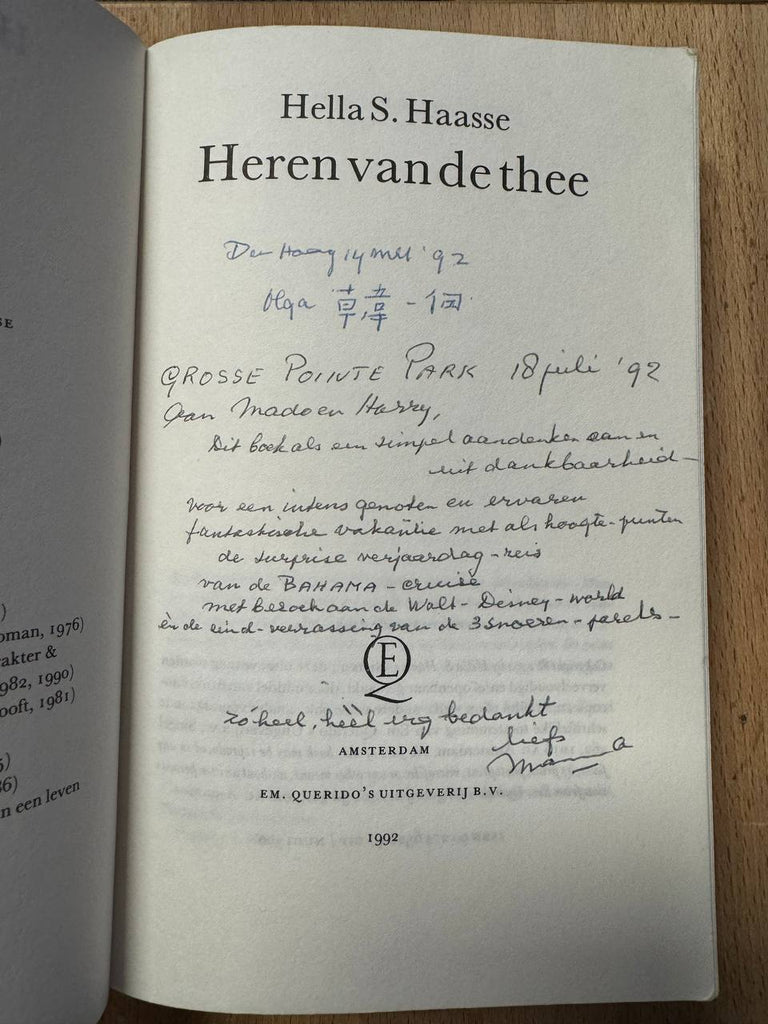 Hella S. Haasse
Heren van de thee
Den Haag 14 mei '92
Olga 韓 - 何
GROSSE POINTE PARK 18 juli '92
Aan Mado en Harry,
Dit boek als een simpel aandenken aan en
uit dankbaarheid -
voor een intens genoten en ervaren
fantastische vakantie met als hoogte-punten
de surprise verjaardag-reis
van de BAHAMA - cruise
met bezoek aan de Walt-Disney-world
èn de eind-verrassing van de 3 snoeren-parels -
E
zó heel, héèl erg bedankt
liefs
Mamma
AMSTERDAM
EM. QUERIDO'S UITGEVERIJ B.V.
1992
SE
)
)
oman, 1976)
rakter &
982, 1990)
ooft, 1981)
)
5)
86)
n een leven